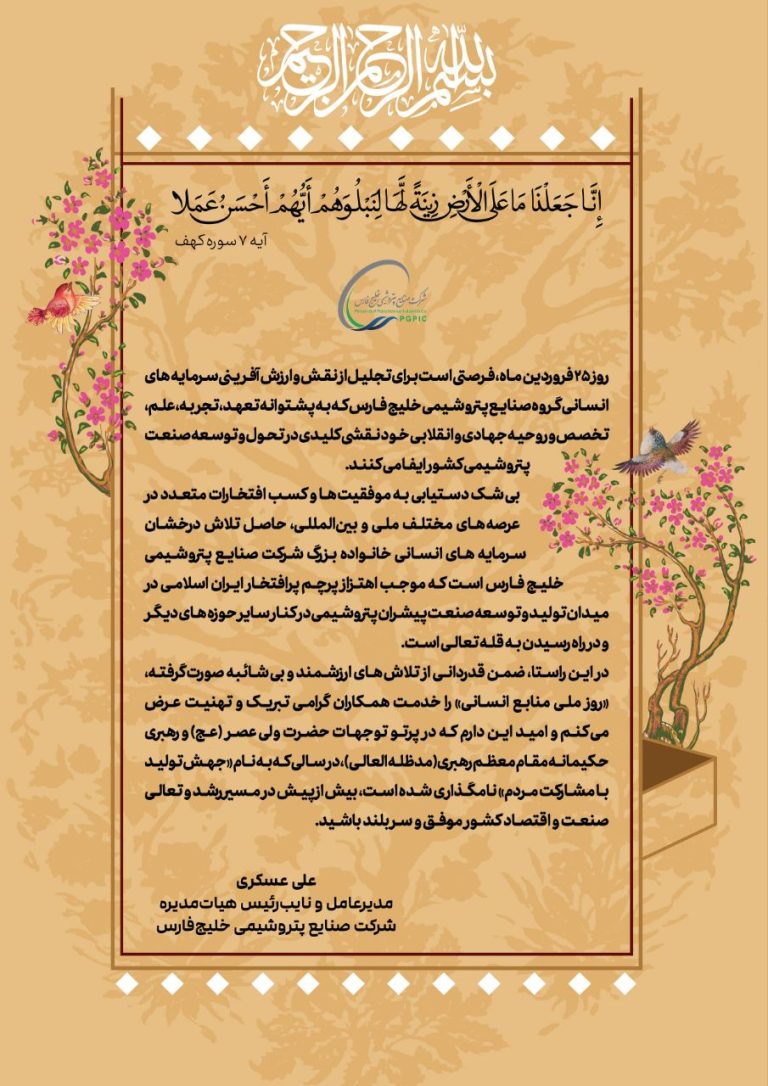 بسم الله الرحمن الرحیم
إِنَّا جَعَلْنَا مَا عَلَى الْأَرْضِ زِينَةً لَّهَا لِنَبْلُوَهُمْ أَيُّهُمْ أَحْسَنُ عَمَلا
آیه ۷ سوره کهف
شرکت صنایع پتروشیمی خلیج فارس
PGPIC
روز ۲۵ فروردین ماه، فرصتی است برای تجلیل از نقش و ارزش آفرینی سرمایه های
انسانی گروه صنایع پتروشیمی خلیج فارس که به پشتوانه تعهد، تجربه، علم،
تخصص و روحیه جهادی و انقلابی خود نقشی کلیدی در تحول و توسعه صنعت
پتروشیمی کشور ایفا می کنند.
بی شک دستیابی به موفقیت ها و کسب افتخارات متعدد در
عرصه های مختلف ملی و بین‌المللی، حاصل تلاش درخشان
سرمایه های انسانی خانواده بزرگ شرکت صنایع پتروشیمی
خلیج فارس است که موجب اهتزاز پرچم پرافتخار ایران اسلامی در
میدان تولید و توسعه صنعت پیشران پتروشیمی در کنار سایر حوزه های دیگر
و در راه رسیدن به قله تعالی است.
در این راستا، ضمن قدردانی از تلاش های ارزشمند و بی شائبه صورت گرفته،
«روز ملی منابع انسانی» را خدمت همکاران گرامی تبریک و تهنیت عرض
می کنم و امید این دارم که در پرتو توجهات حضرت ولی عصر (عج) و رهبری
حکیمانه مقام معظم رهبری (مدظله العالی)، در سالی که به نام «جهش تولید
با مشارکت مردم» نامگذاری شده است، بیش از پیش در مسیر رشد و تعالی
صنعت و اقتصاد کشور موفق و سربلند باشید.
علی عسکری
مدیرعامل و نایب رئیس هیات‌مدیره
شرکت صنایع پتروشیمی خلیج‌فارس